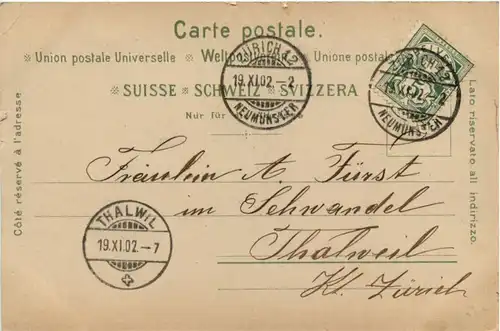 Carte postale.
Union postale Universelle Weltpostverein Unione postale
SUISSE SCHWEIZ SVIZZERA
Nur für
Côté réservé à l'adresse
Lato riservato all indirizzo.
ZÜRICH 12
19.XI.02.-2
NEUMÜNSTER
ZÜRICH 12
19.XI.02.-2
NEUMÜNSTER
Fräulein A. Fürst
im Schwandel
Thalweil
Kt. Zürich
THALWIL
19.XI.02.-7